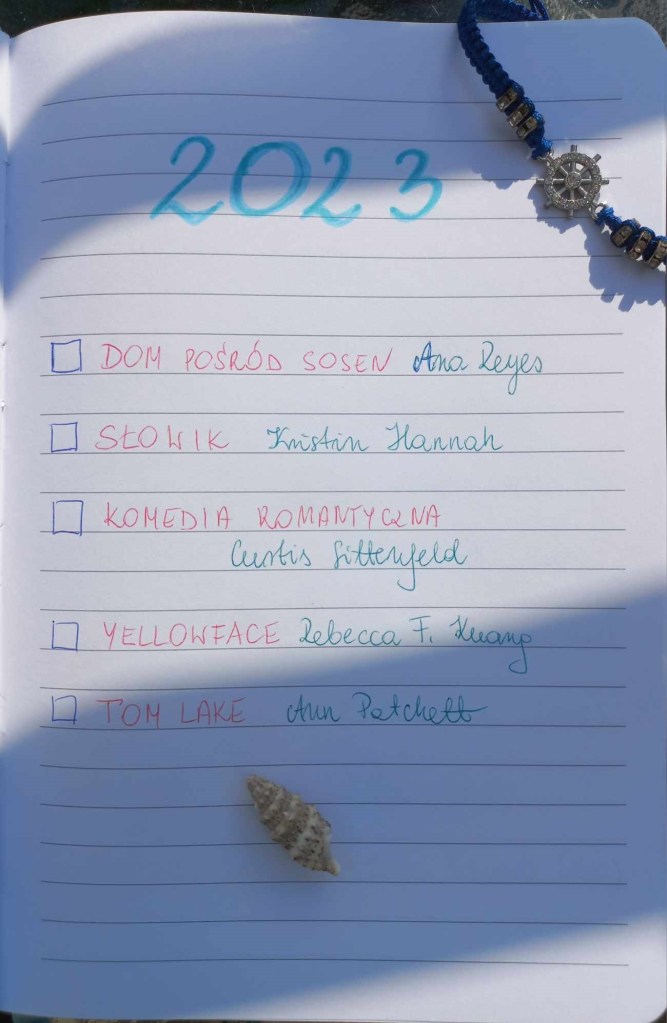 2023
DOM POŚRÓD SOSEN Ana Reyes
SŁOWIK Kristin Hannah
KOMEDIA ROMANTYCZNA
Curtis Sittenfeld
YELLOWFACE Rebecca F. Kuang
TOM LAKE Ann Patchett